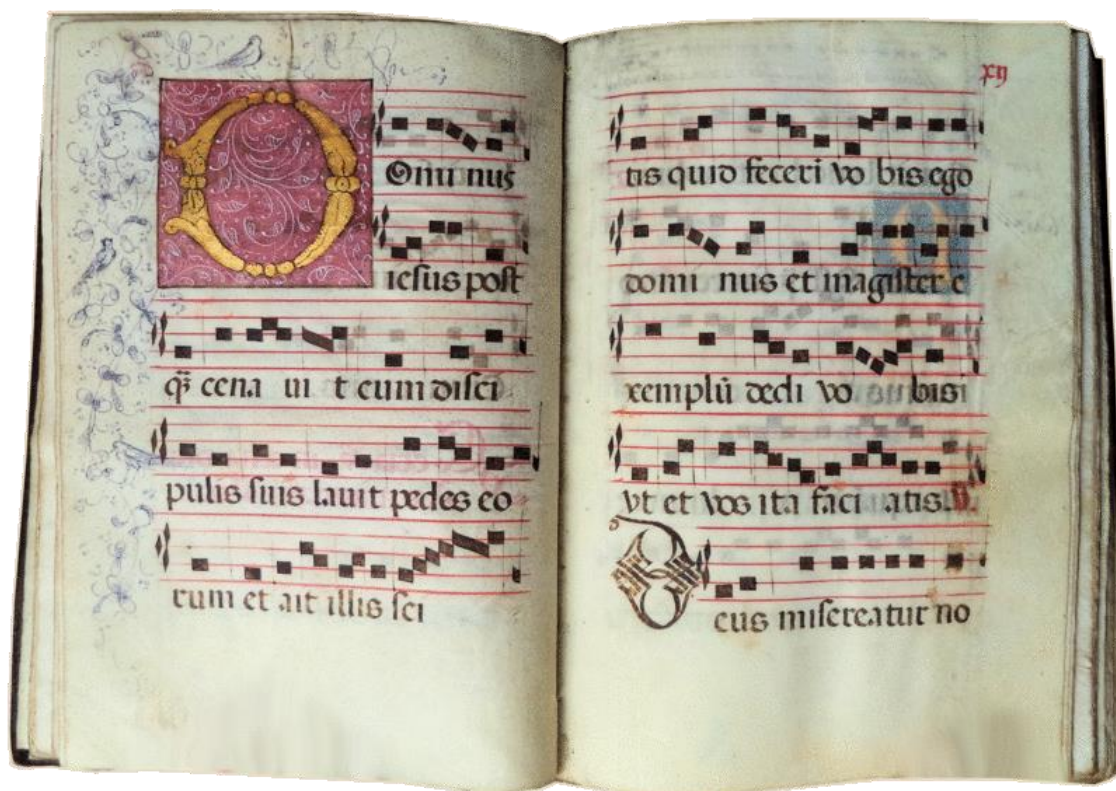 Omi nus
iesus post
q̃ꝫ cena ui t cum disci
pulis suis lauit pedes eo
rum et ait illis sci
xij
tis quid feceri vo bis ego
domi nus et magister e
xemplũ dedi vo bis
vt et vos ita faci atis. V.
Deus misereatur no